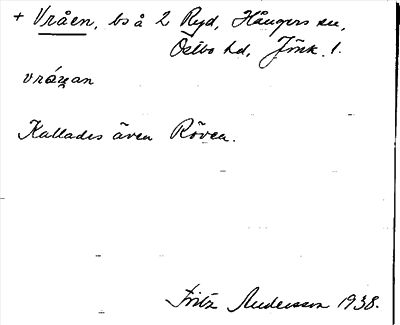 + Vråen, bs å 2 Ryd, Hångers sn,
Östbo hd, Jönk. l.
vrå̀ɳan
Kallades även Röven.
Fritz Andersson 1938.